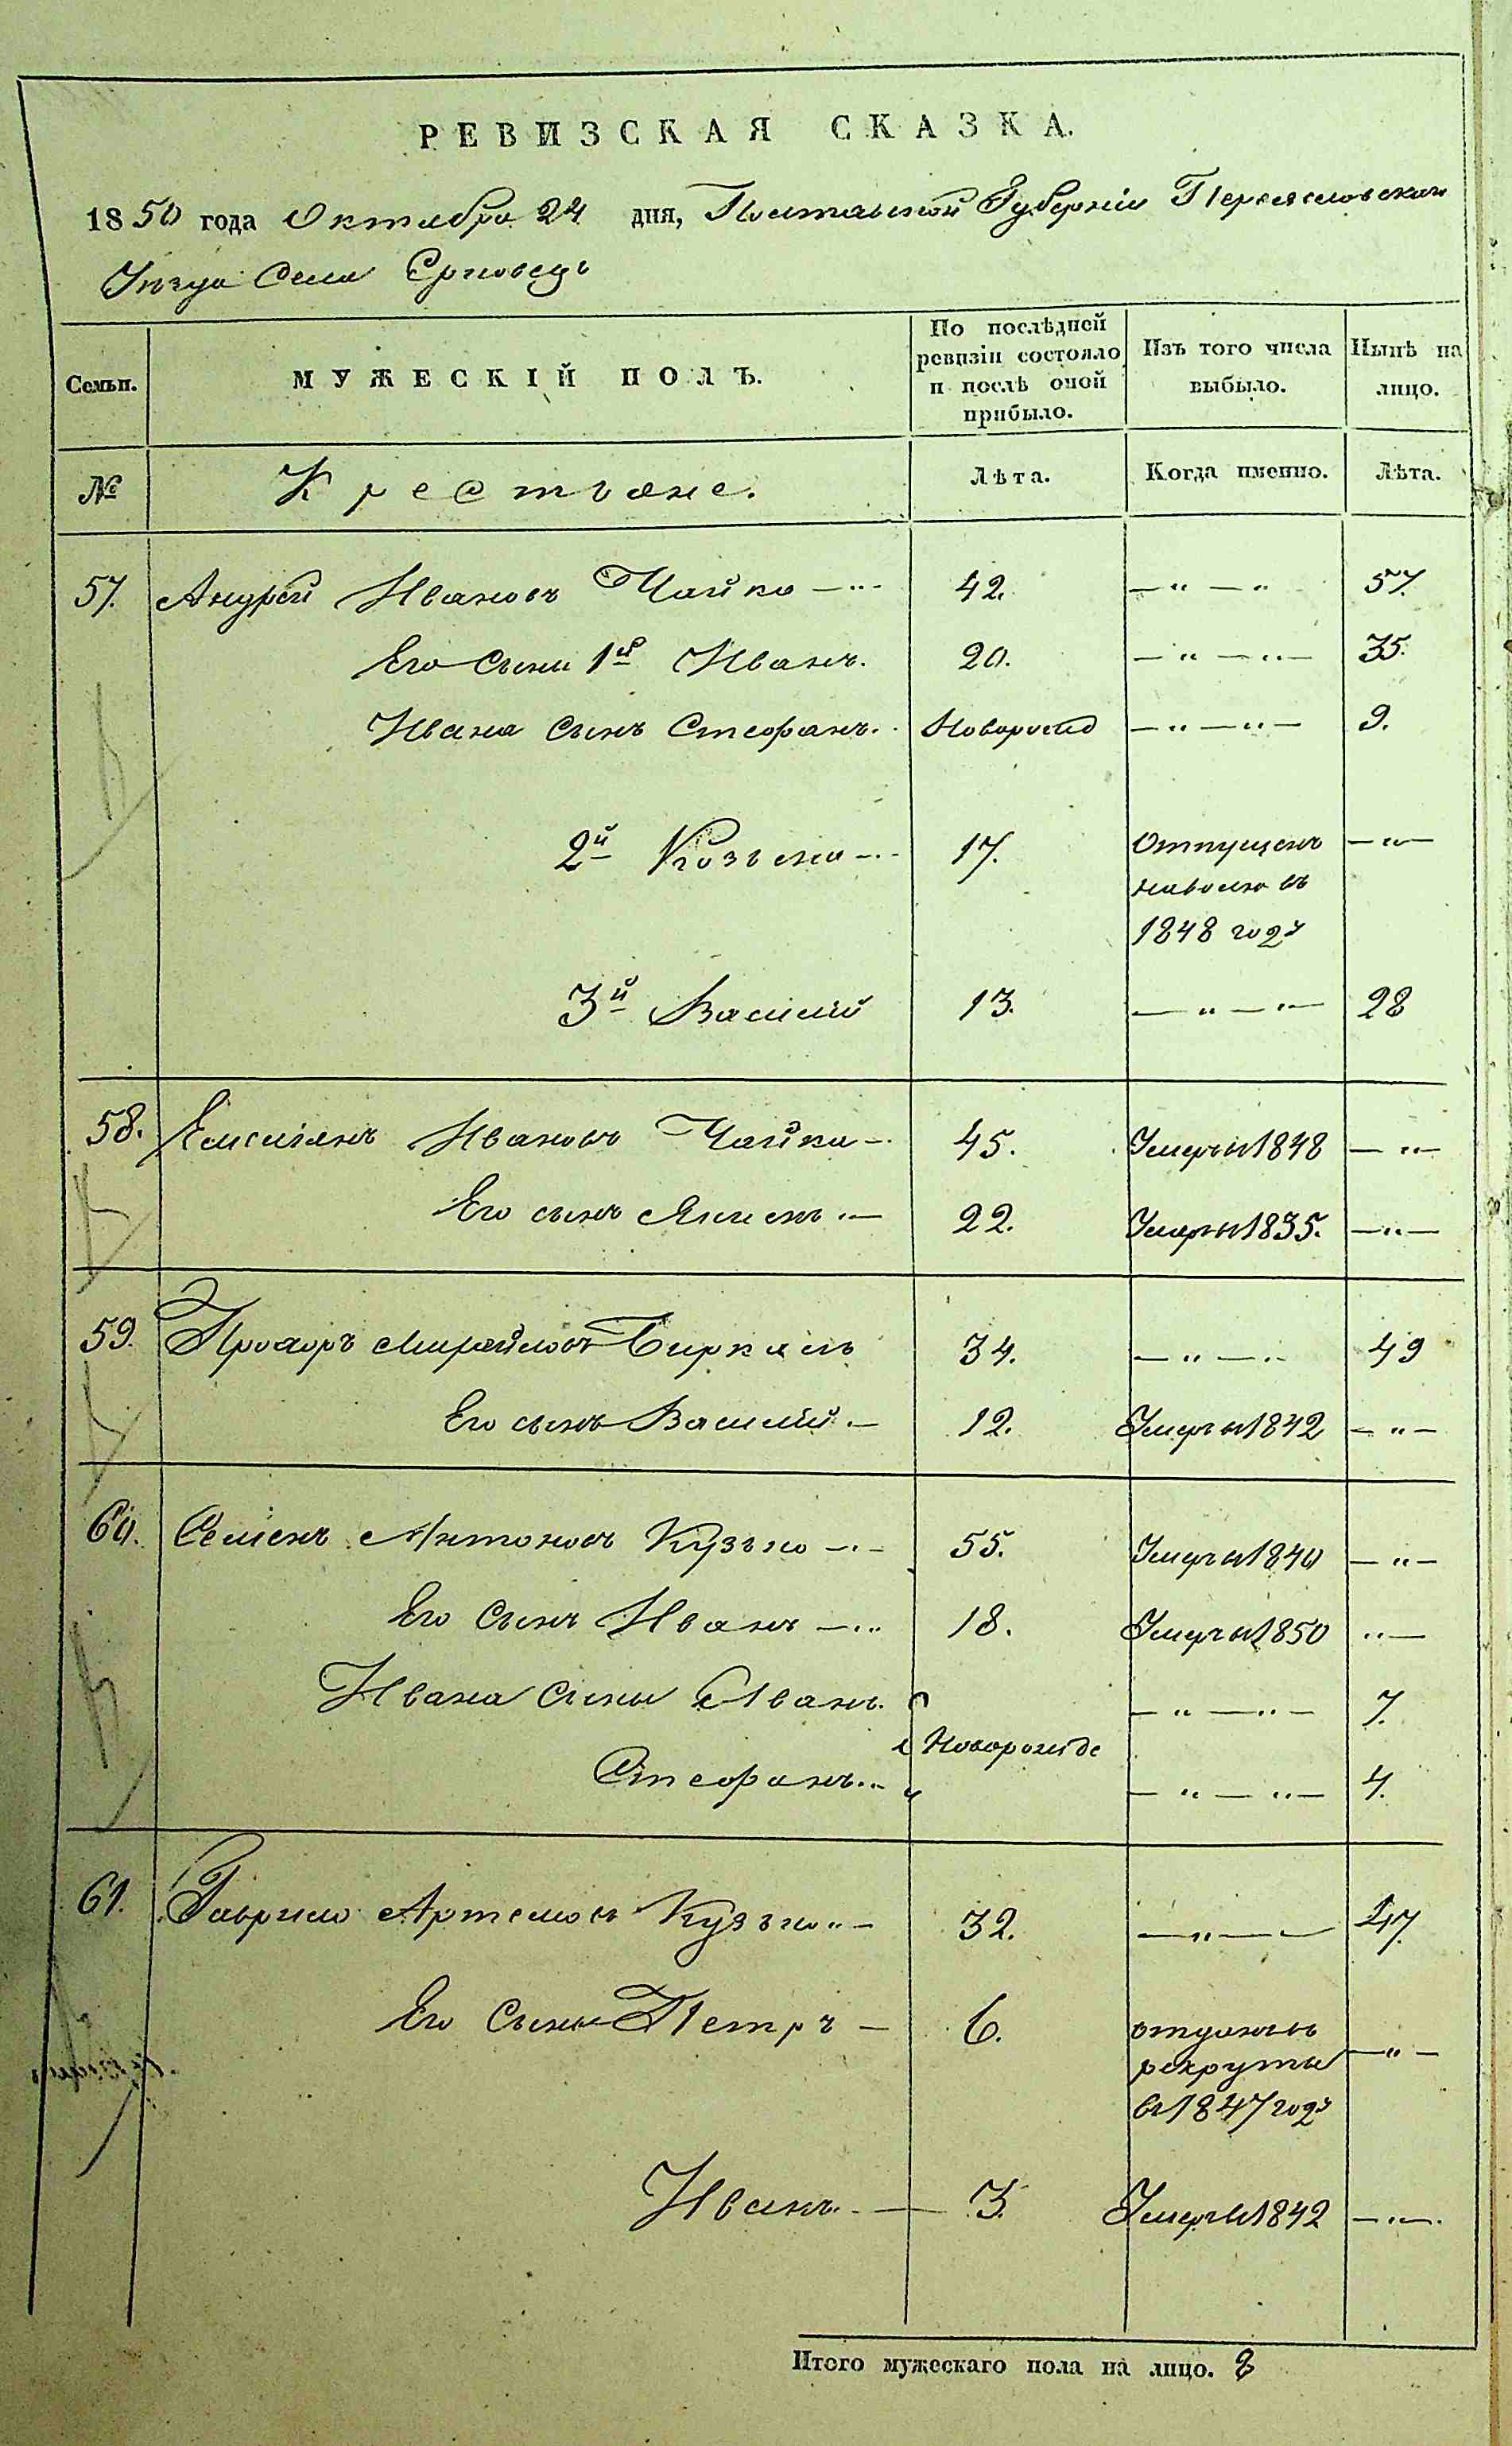 РЕВИЗСКАЯ СКАЗКА.
1850 года Октября 24 дня, Полтавской Губерніи Переясловскаго
Уѣзда Села Ерковецъ
Семьи. МУЖЕСКІЙ ПОЛЪ. По послѣдней ревизіи состояло и послѣ оной прибыло. Изъ того числа выбыло. Нынѣ на лицо.
№ Крестьяне. Лѣта. Когда именно. Лѣта.
57. Андрей Ивановъ Чайка 42. —"—" 57.
Его сыны 1й Иванъ. 20. —"—"— 35.
Ивана сынъ Стефанъ. Новорожд —"—"— 9.
2й Козьма 17. Отпущенъ —"—
на волю въ
1848 году
3й Василій 13. —"—"— 28
58. Емелianъ Ивановъ Чайка 45. Умеръ въ 1848 —"—
Его сынъ 22. Умеръ въ 1835. —"—
59. Прохоръ 34. —"—" 49
Его сынъ Василій 12. Умеръ въ 1842 —"—
60. Семенъ Антоновъ Кузьма 55. Умеръ въ 1840 —"—
Его сынъ Иванъ 18. Умеръ въ 1850 "—
Ивана сыны Иванъ. —"—"— 7.
Новорожде
Стефанъ —"—"— 4.
61. Гаврило Артемовъ Кузьма 32. —"—— 47.
Его сыны Петръ — 6. отданъ въ —"—
рекруты
въ 1847 году
Иванъ. — 3. Умеръ въ 1842 —"—.
Итого мужескаго пола на лицо. 8